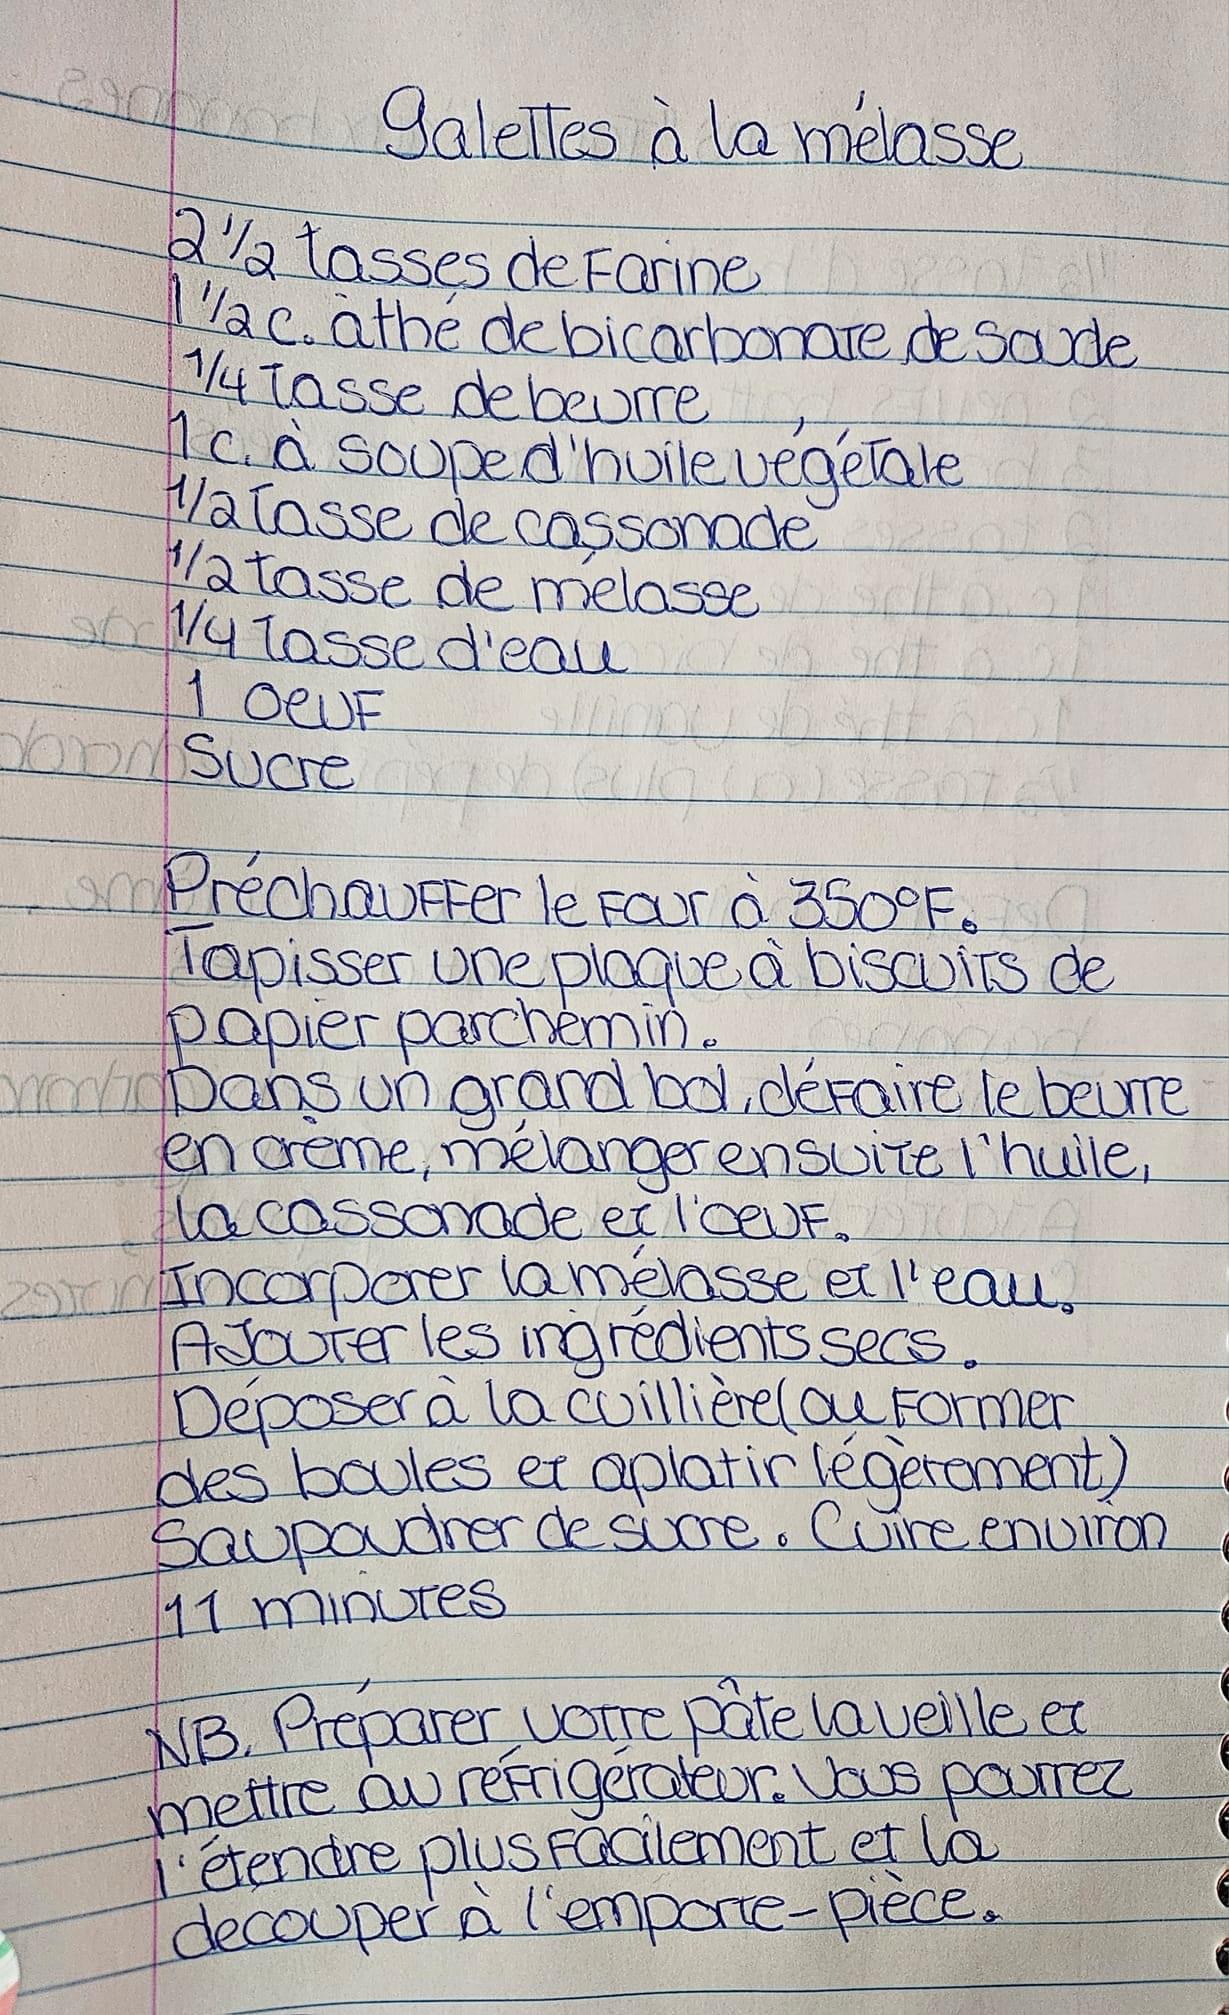 Galettes à la mélasse
2 1/2 tasses de farine
1 1/2 c. à thé de bicarbonate de soude
1/4 tasse de beurre
1 c. à soupe d'huile végétale
1/2 tasse de cassonade
1/2 tasse de mélasse
1/4 tasse d'eau
1 oeuf
Sucre
Préchauffer le four à 350°F.
Tapisser une plaque à biscuits de
papier parchemin.
Dans un grand bol, défaire le beurre
en crème, mélanger ensuite l'huile,
la cassonade et l'oeuf.
Incorporer la mélasse et l'eau.
Ajouter les ingrédients secs.
Déposer à la cuillière (ou former
des boules et aplatir légèrement)
Saupoudrer de sucre. Cuire environ
11 minutes
NB. Préparer votre pâte la veille et
mettre au réfrigérateur. Vous pourrez
l'étendre plus facilement et la
decouper à l'emporte-pièce.